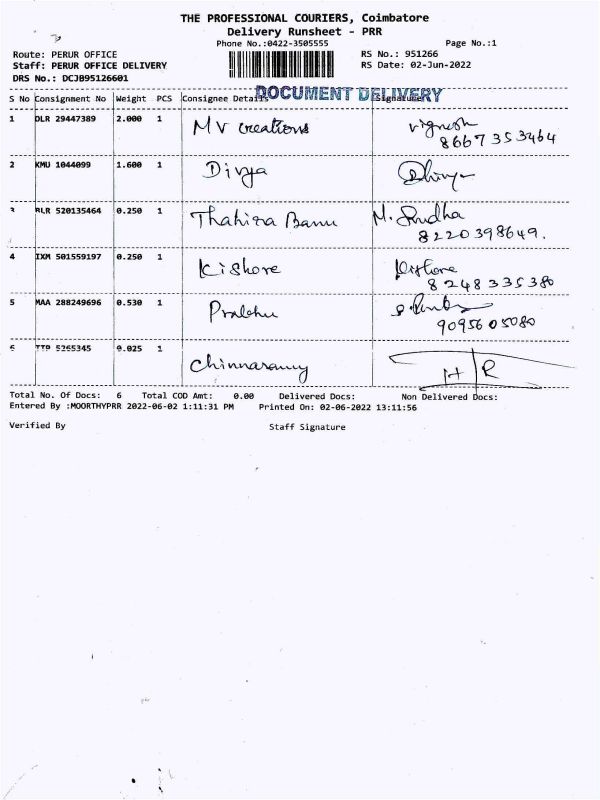 THE PROFESSIONAL COURIERS, Coimbatore
Delivery Runsheet - PRR
Phone No.:0422-3505555 Page No.:1
Route: PERUR OFFICE RS No.: 951266
Staff: PERUR OFFICE DELIVERY RS Date: 02-Jun-2022
DRS No.: DCJB95126601
DOCUMENT DELIVERY
S No Consignment No Weight PCS Consignee Details Signature
1 DLR 29447389 2.000 1 MV creations vignesh
8667353464
2 KMU 1044099 1.600 1 Divya Dhivya
3 BLR 520135464 0.250 1 Thahira Banu M. Sudha
8220398649.
4 IXM 501559197 0.250 1 Kishore Kishore
8248335380
5 MAA 288249696 0.530 1 Prabhu
9095605080
6 TTP 5265345 0.025 1 Chinnasamy H R
Total No. Of Docs: 6 Total COD Amt: 0.00 Delivered Docs: Non Delivered Docs:
Entered By :MOORTHYPRR 2022-06-02 1:11:31 PM Printed On: 02-06-2022 13:11:56
Verified By Staff Signature